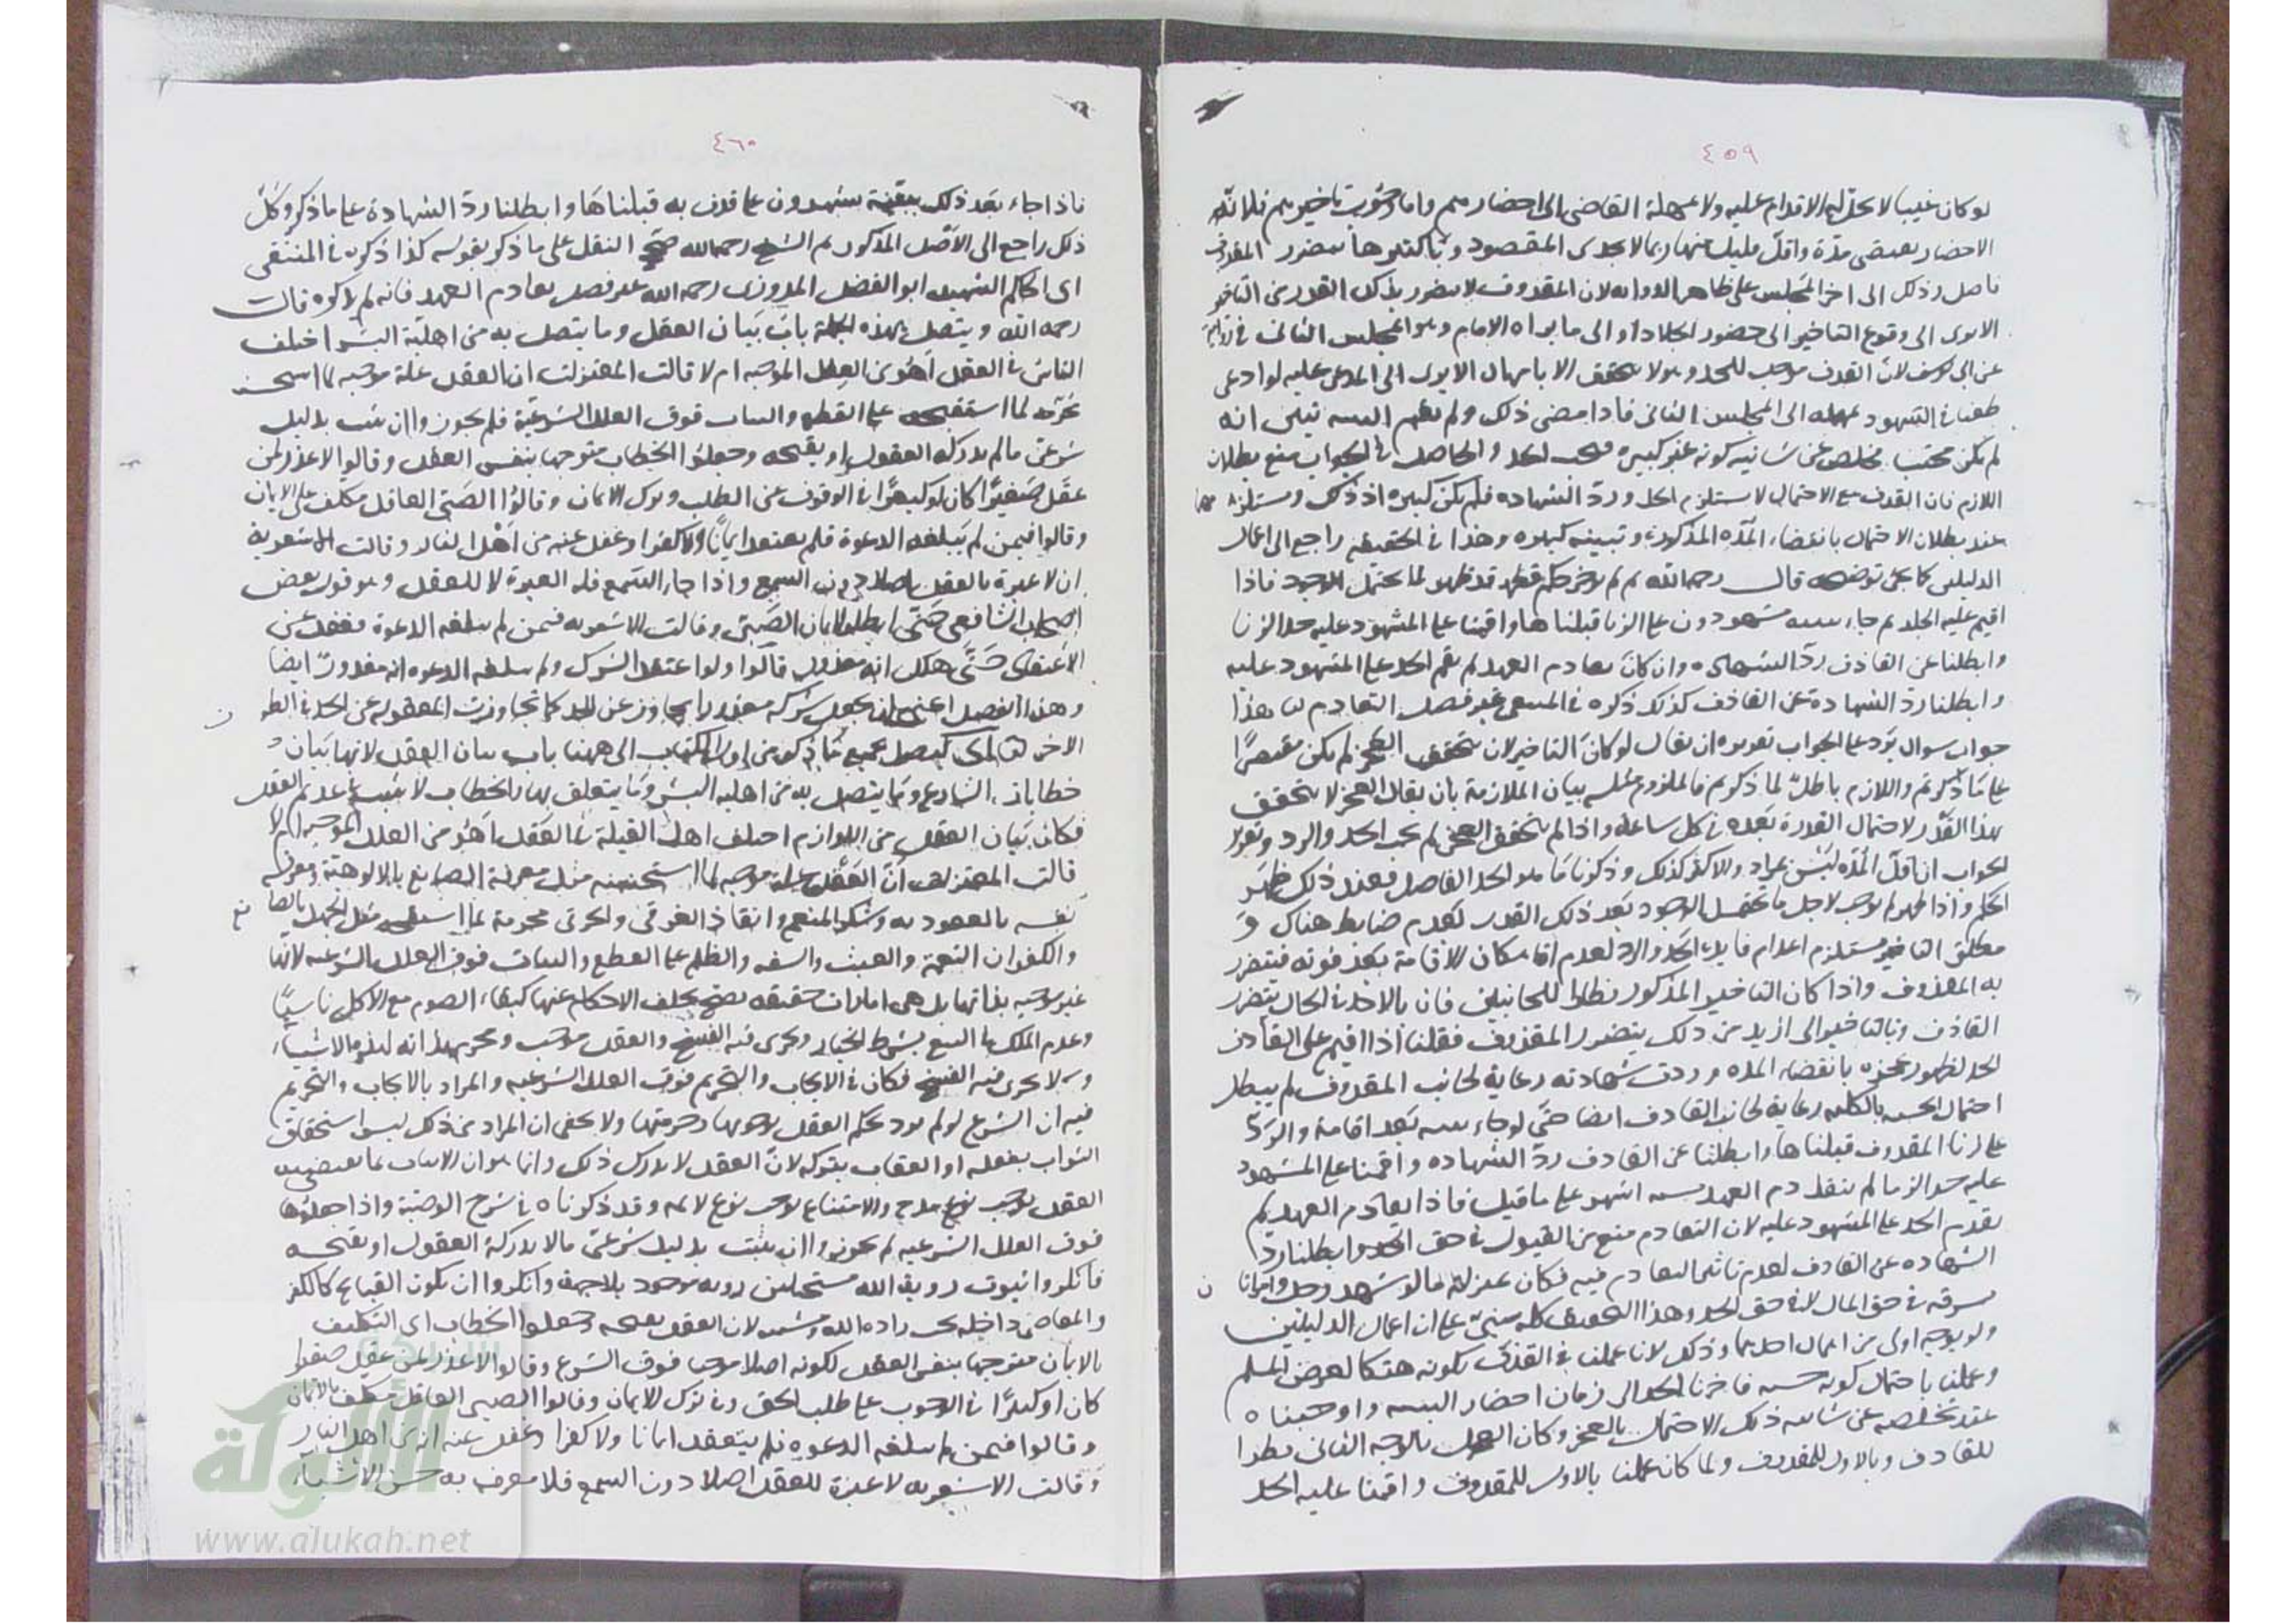 ٤٥٩
لو كان غيبا لا يحل لهم الاقدام عليه ولا يمهله القاضي الى احضارهم واما وجوب تاخيرهم فلانه
الاحضار مدة واقل قليل منها ربما لا يجدى المقصود وباكثرها يتضرر المقذوف
ذلك الى اخر المجلس على ظاهر الرواية لان المقذوف لا يتضرر بذلك القدر من التاخير
الا يرى الى وقوع التاخير الى حضور الجلاد او الى ما يراه الامام وهو المجلس الثاني في رواية
عن ابى يوسف لان القذف موجب للحد وهو لا يتحقق الا بامهال الا يرى الى المدعى عليه لو ادعى
طعنا في الشهود يمهله الى المجلس الثاني فاذا مضى ذلك ولم يقم البينة تبين انه
لم يكن فيجب الحد والحاصل في الجواب منع بطلان
اللازم فان القذف مع الاحتمال لا يستلزم الحد ورد الشهادة فلم يكن كبيرة اذ ذاك
عند بطلان الاحتمال بانقضاء المدة المذكورة وتبينه كبيرة وهذا في الحقيقة راجع الى اعمال
الدليلين قال رحمه الله ثم لم يؤخر حكم قد ظهر لما يحتمل الوجود فاذا
اقيم عليه الحد ثم جاء ببينة يشهدون على الزنا قبلناها واقمنا على المشهود عليه حد الزنا
وابطلنا عن القاذف رد الشهادة وان كان تقادم العهد لم نقم الحد على المشهود عليه
وابطلنا رد الشهادة عن القاذف كذلك ذكره في المنتقى غير فصل التقادم هذا
جواب سوال يرد على الجواب تقريره ان يقال لو كان التاخير لان يتحقق العجز لم يكن مقتصرا
على ما ذكرتم واللازم باطل لما ذكرتم فالملزوم مثله بيان الملازمة بان يقال العجز لا يتحقق
بهذا القدر لاحتمال القدرة بعده في كل ساعة واذا لم يتحقق العجز لم يجب الحد والرد وتقرير
الجواب ان اقل المدة ليس بمراد والاكثر كذلك وذكرنا ما هو الحد الفاصل فعند ذلك ظهر
الحكم واذا ظهر لاجل ما يحتمل الوجود بعد ذلك القدر لعدم ضابط هناك و
مطلق التاخير مستلزم اعدام فايدة الحد والرد لعدم امكان الاقامة بعد فوته فيتضرر
به المقذوف واذا كان التاخير المذكور نظرا للجانبين فان بالاخذ في الحال يتضرر
القاذف وبالتاخير الى ازيد من ذلك يتضرر المقذوف فقلنا اذا اقيم على القاذف
الحد لظهور عجزه بانقضاء المدة وردت شهادته رعاية لجانب المقذوف لم يبطل
احتمال الحسبة بالكلية رعاية لجانب القاذف ايضا حتى لو جاء ببينة بعد اقامة والرد
على زنا المقذوف قبلناها وابطلنا عن القاذف رد الشهادة واقمنا على المشهود
عليه حد الزنا ما لم يتقادم العهد على ما قيل فاذا تقادم العهد لم
نقم الحد على المشهود عليه لان التقادم منع من القبول في حق الحد وابطلنا رد
الشهادة عن القاذف لعدم تاثير التقادم فيه فكان بمنزلة ما لو شهد رجل وامراتان
سرقة في حق المال لا في حق الحد وهذا التحقيق كله مبني على ان اعمال الدليلين
ولو بوجه اولى من اهمال احدهما وذلك لانا عملنا في القذف بكونه هتكا لعرض المسلم
وعملنا باحتمال كونه حسبة فاخرنا الحد الى زمان احضار البينة واوجبناه
عند تخلصه عن شائبة ذلك الاحتمال بالعجز وكان العمل بالوجه الثاني نظرا
للقاذف وبالاول للمقذوف ولما كان عملنا بالاول للمقذوف واقمنا عليه الحد
٤٦٠
فاذا جاء بعد ذلك ببينة يشهدون على ما قذف به قبلناها وابطلنا رد الشهادة على ما ذكر وكل
ذلك راجع الى الاصل المذكور ثم الشيخ رحمه الله صحح النقل على ما ذكر بقوله كذا ذكره في المنتقى
اى الحاكم الشهيد ابو الفضل المروزى رحمه الله غير فصل تقادم العهد فانه لم يذكره قال
رحمه الله ويتصل بهذه الجملة باب بيان العقل وما يتصل به من اهلية البشر اختلف
الناس في العقل اهو من العلل الموجبة ام لا قالت المعتزلة ان العقل علة موجبة لما استحسنه
محرمة لما استقبحه على القطع والبتات فوق العلل الشرعية فلم يجوزوا ان يثبت بدليل
شرعي ما لم يدركه العقول او يقبحه وجعلوا الخطاب متوجها بنفس العقل وقالوا لا عذر لمن
عقل صغيرا كان او كبيرا في الوقوف عن الطلب وترك الايمان وقالوا الصبي العاقل مكلف على الايمان
وقالوا فيمن لم يبلغه الدعوة فلم يعتقد ايمانا ولا كفرا وغفل عنه من اهل النار وقالت الاشعرية
ان لا عبرة بالعقل اصلا دون السمع واذا جاء السمع فله العبرة لا للعقل وهو قول بعض
اصحاب الشافعي حتى ابطلوا ايمان الصبي وقالت الاشعرية فيمن لم يبلغه الدعوة فغفل عن
الاعتقاد حتى هلك انه معذور قالوا ولو اعتقد الشرك ولم يبلغه الدعوة انه معذور ايضا
وهذا الفصل اعني ان يجعل شركه معذورا تجاوز عن الحد كما تجاوزت المعتزلة عن الحد في الطرف
الاخر بجميع ما ذكر من اول الكتاب الى ههنا باب بيان العقل لانها بيان
خطابات الشارع وما يتصل به من اهلية البشر وما يتعلق بها والخطاب لا يثبت على عديم العقل
فكان بيان العقل من اللوازم اختلف اهل القبلة في العقل اهو من العلل الموجبة ام لا
قالت المعتزلة ان العقل علة موجبة لما استحسنه مثل معرفة الصانع بالالوهية ومعرفة
نفسه بالعبودية وشكر المنعم وانقاذ الغرقى والحرقى محرمة لما استقبحه مثل الجهل بالصانع
والكفران النعمة والعبث والسفه والظلم على القطع والبتات فوق العلل الشرعية لانها
غير موجبة بذاتها بل هي امارات حقيقة يصح تخلف الاحكام عنها كبقاء الصوم مع الاكل ناسيا
وعدم الملك في البيع بشرط الخيار ويجرى فيه الفسخ والعقل موجب ومحرم لذاته لهذه الاشياء
ولا يجرى فيه الفسخ فكان في الايجاب والتحريم فوق العلل الشرعية والمراد بالايجاب والتحريم
فيه ان الشرع لو لم يرد يحكم العقل بوجوبها وحرمتها ولا يخفى ان المراد من ذلك ليس استحقاق
الثواب بفعله او العقاب بتركه لان العقل لا يدرك ذلك وانما هو ان الاتيان بما يقتضيه
العقل يوجب نوع مدح والامتناع يوجب نوع لائمة وقد ذكرناه في شرح الوصية واذا جعلوها
فوق العلل الشرعية لم يجوزوا ان يثبت بدليل شرعي ما لا يدركه العقول او تقبحه
فانكروا ثبوت رؤية الله مستحيلين رؤية موجود بلا جهة وانكروا ان يكون القبائح كالكفر
والمعاصى داخلة تحت ارادة الله ومشيته لان العقل يقبحه وجعلوا الخطاب اى التكليف
بالايمان متوجها بنفس العقل لكونه اصلا موجبا فوق الشرع وقالوا لا عذر لمن عقل صغيرا
كان او كبيرا في الوجوب على طلب الحق وفي ترك الايمان وقالوا الصبي العاقل مكلف بالايمان
وقالوا فيمن لم يبلغه الدعوة فلم يعتقد ايمانا ولا كفرا وغفل عنه انه من اهل النار
وقالت الاشعرية لا عبرة للعقل اصلا دون السمع فلا يعرف به حسن الاشياء
الألوكة
www.alukah.net